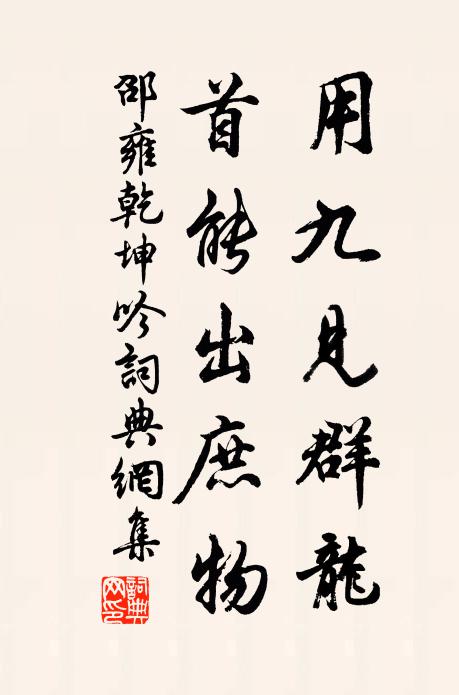 用九見群龍
首能出庶物
邵雍乾坤吟詞典網集
詞典
网印